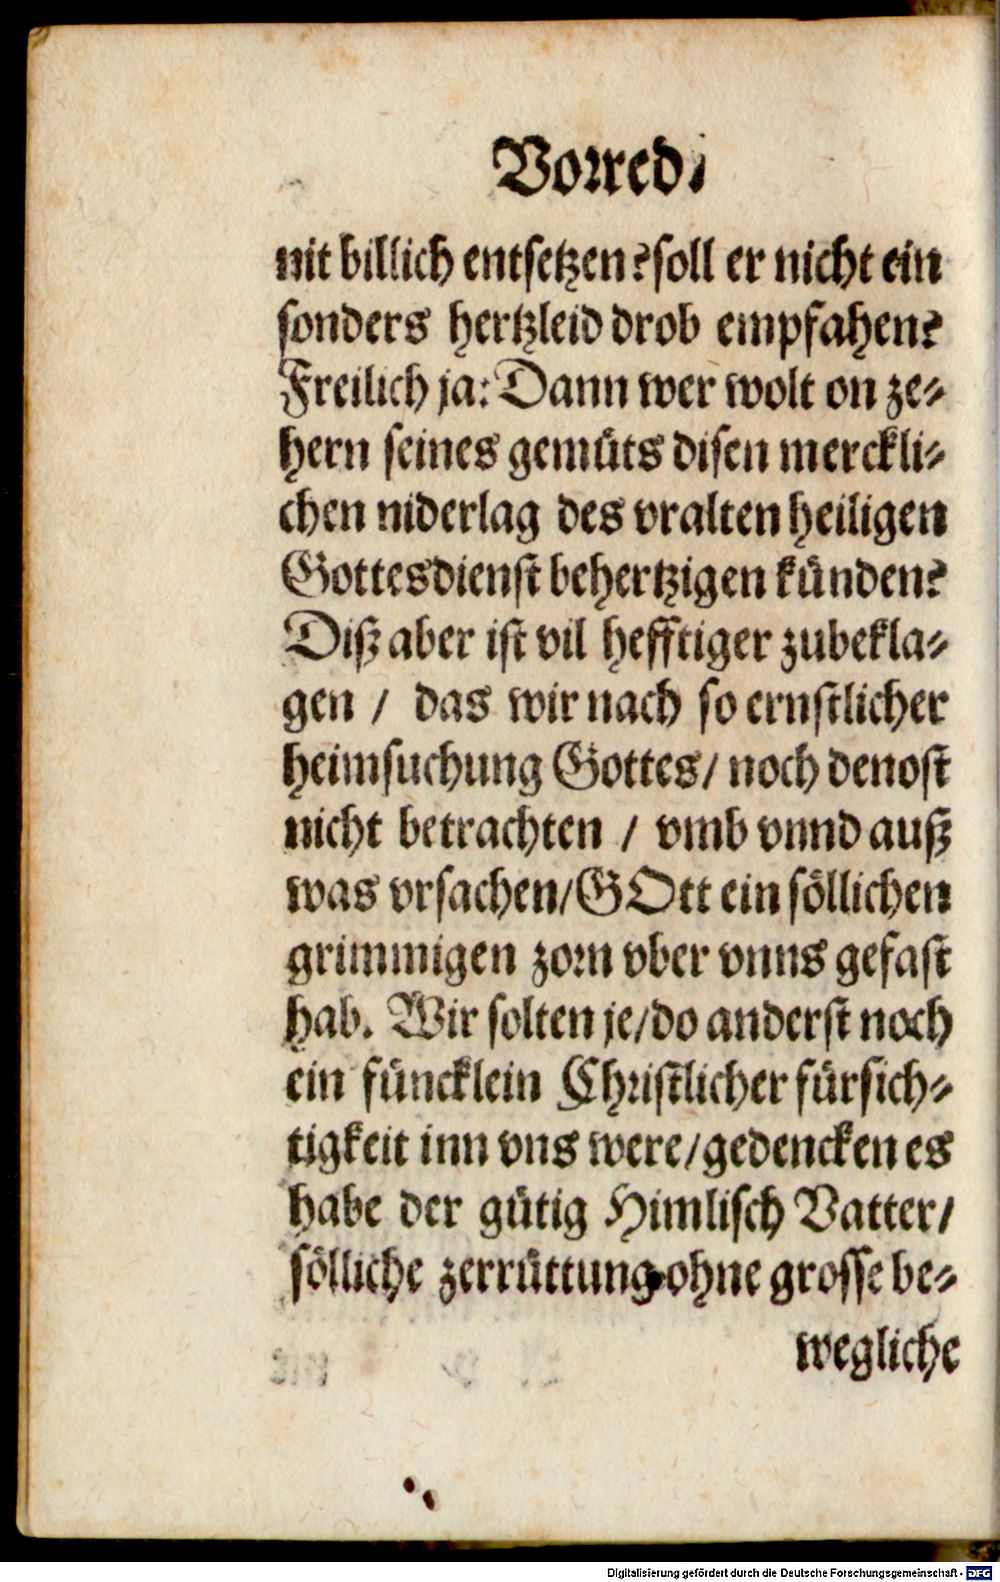 Vorred.
nit billich entsetzen? soll er nicht ein
sonders hertzleid drob empfahen?
Freilich ja: Dann wer wolt on ze-
hern seines gemüts disen merckli-
chen niderlag des vralten heiligen
Gottesdienst behertzigen künden?
Diß aber ist vil hefftiger zubekla-
gen / das wir nach so ernstlicher
heimsuchung Gottes / noch denost
nicht betrachten / vmb vnnd auß
was vrsachen / GOtt ein söllichen
grimmigen zorn vber vnns gefast
hab. Wir solten je / do anderst noch
ein füncklein Christlicher fürsich-
tigkeit inn vns were / gedencken es
habe der gütig Himlisch Vatter /
sölliche zerrüttung ohne grosse be-
wegliche
Digitalisierung gefördert durch die Deutsche Forschungsgemeinschaft - DFG